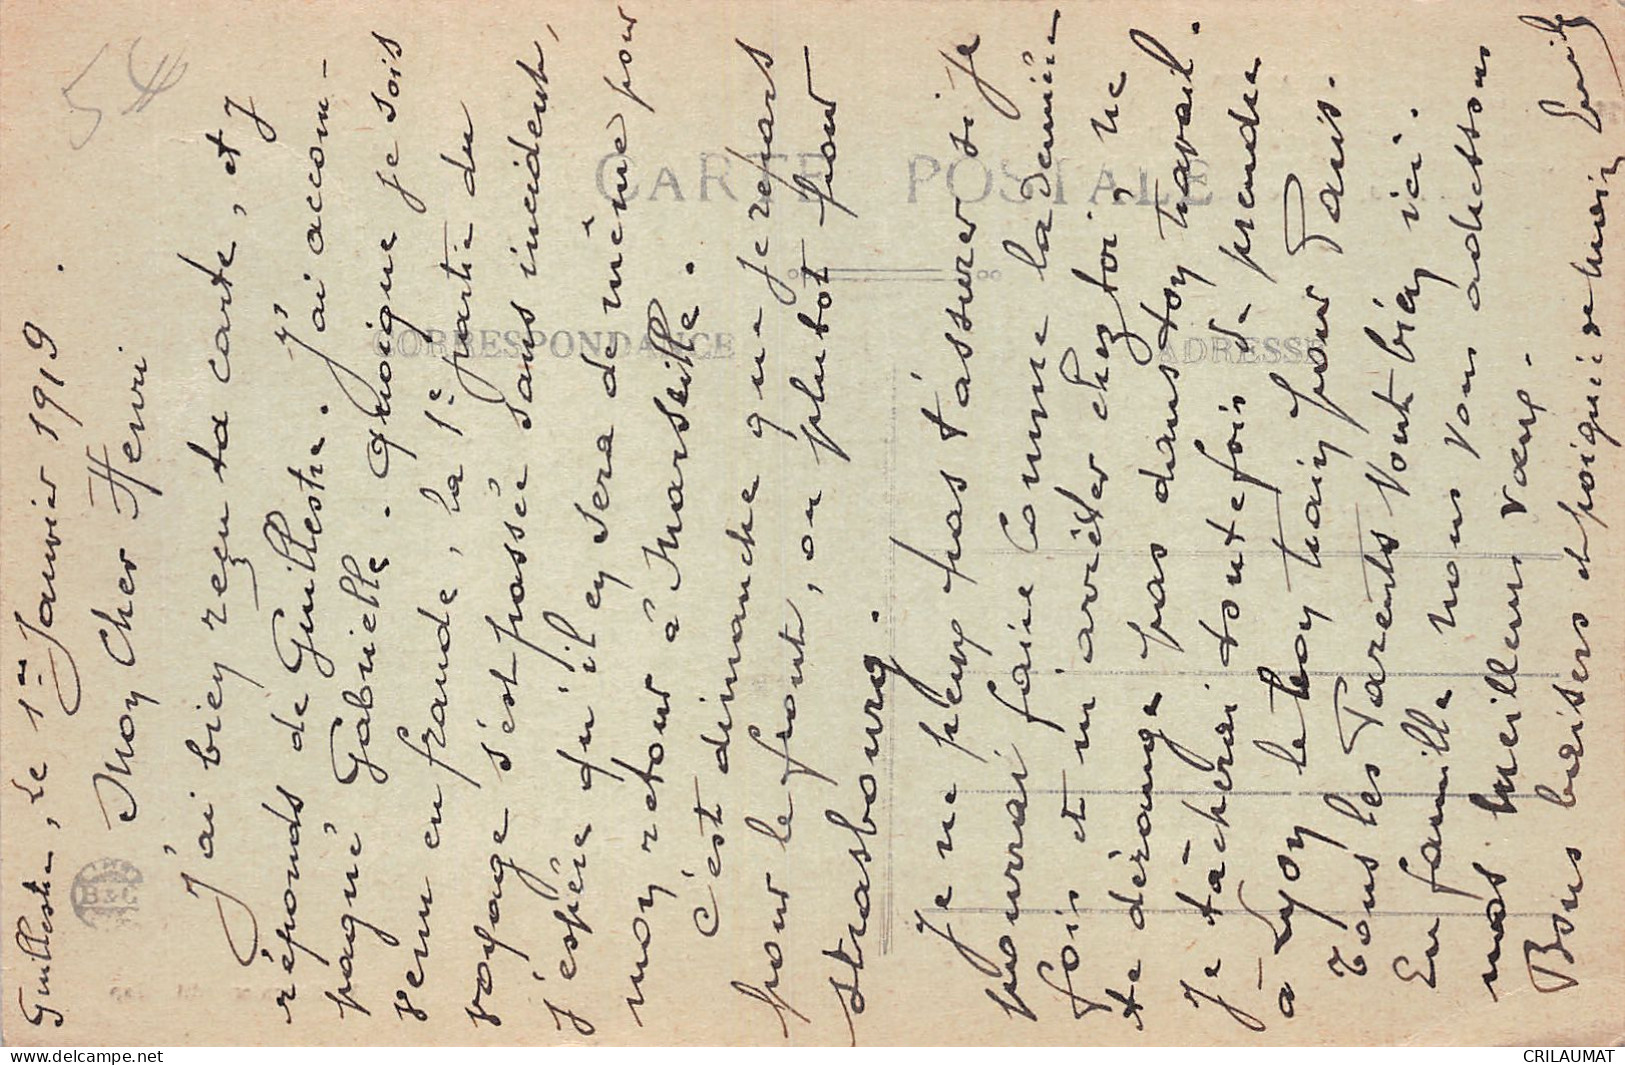 Guillestre, Le 1er Janvier 1919.
Mon Cher Henri
J'ai bien reçu ta carte, et J
réponds de Guillestre. J'ai accom-
pagné Gabrielle. Quoique je sois
venu en fraude, la 1e partie du
voyage s'est passée sans incident,
j'espère qu'il en sera de même pour
mon retour à Marseille.
C'est dimanche que je repars
pour le front, ou plutot pour
Strasbourg.
Je ne peux pas t'assurer si je
pourrai faire comme la dernière
fois et m'arrêter chez toi, ne
te dérange pas dans ton travail.
Je tâcherai toutefois de prendre
à Lyon le bon train pour Paris.
Tous les Parents vont bien ici.
En famille nous vous adressons
nos meilleurs vœux.
Bons baisers et poignée de main
CARTE POSTALE
CORRESPONDANCE
ADRESSE
B & G
delcampe.net
CRILAUMAT